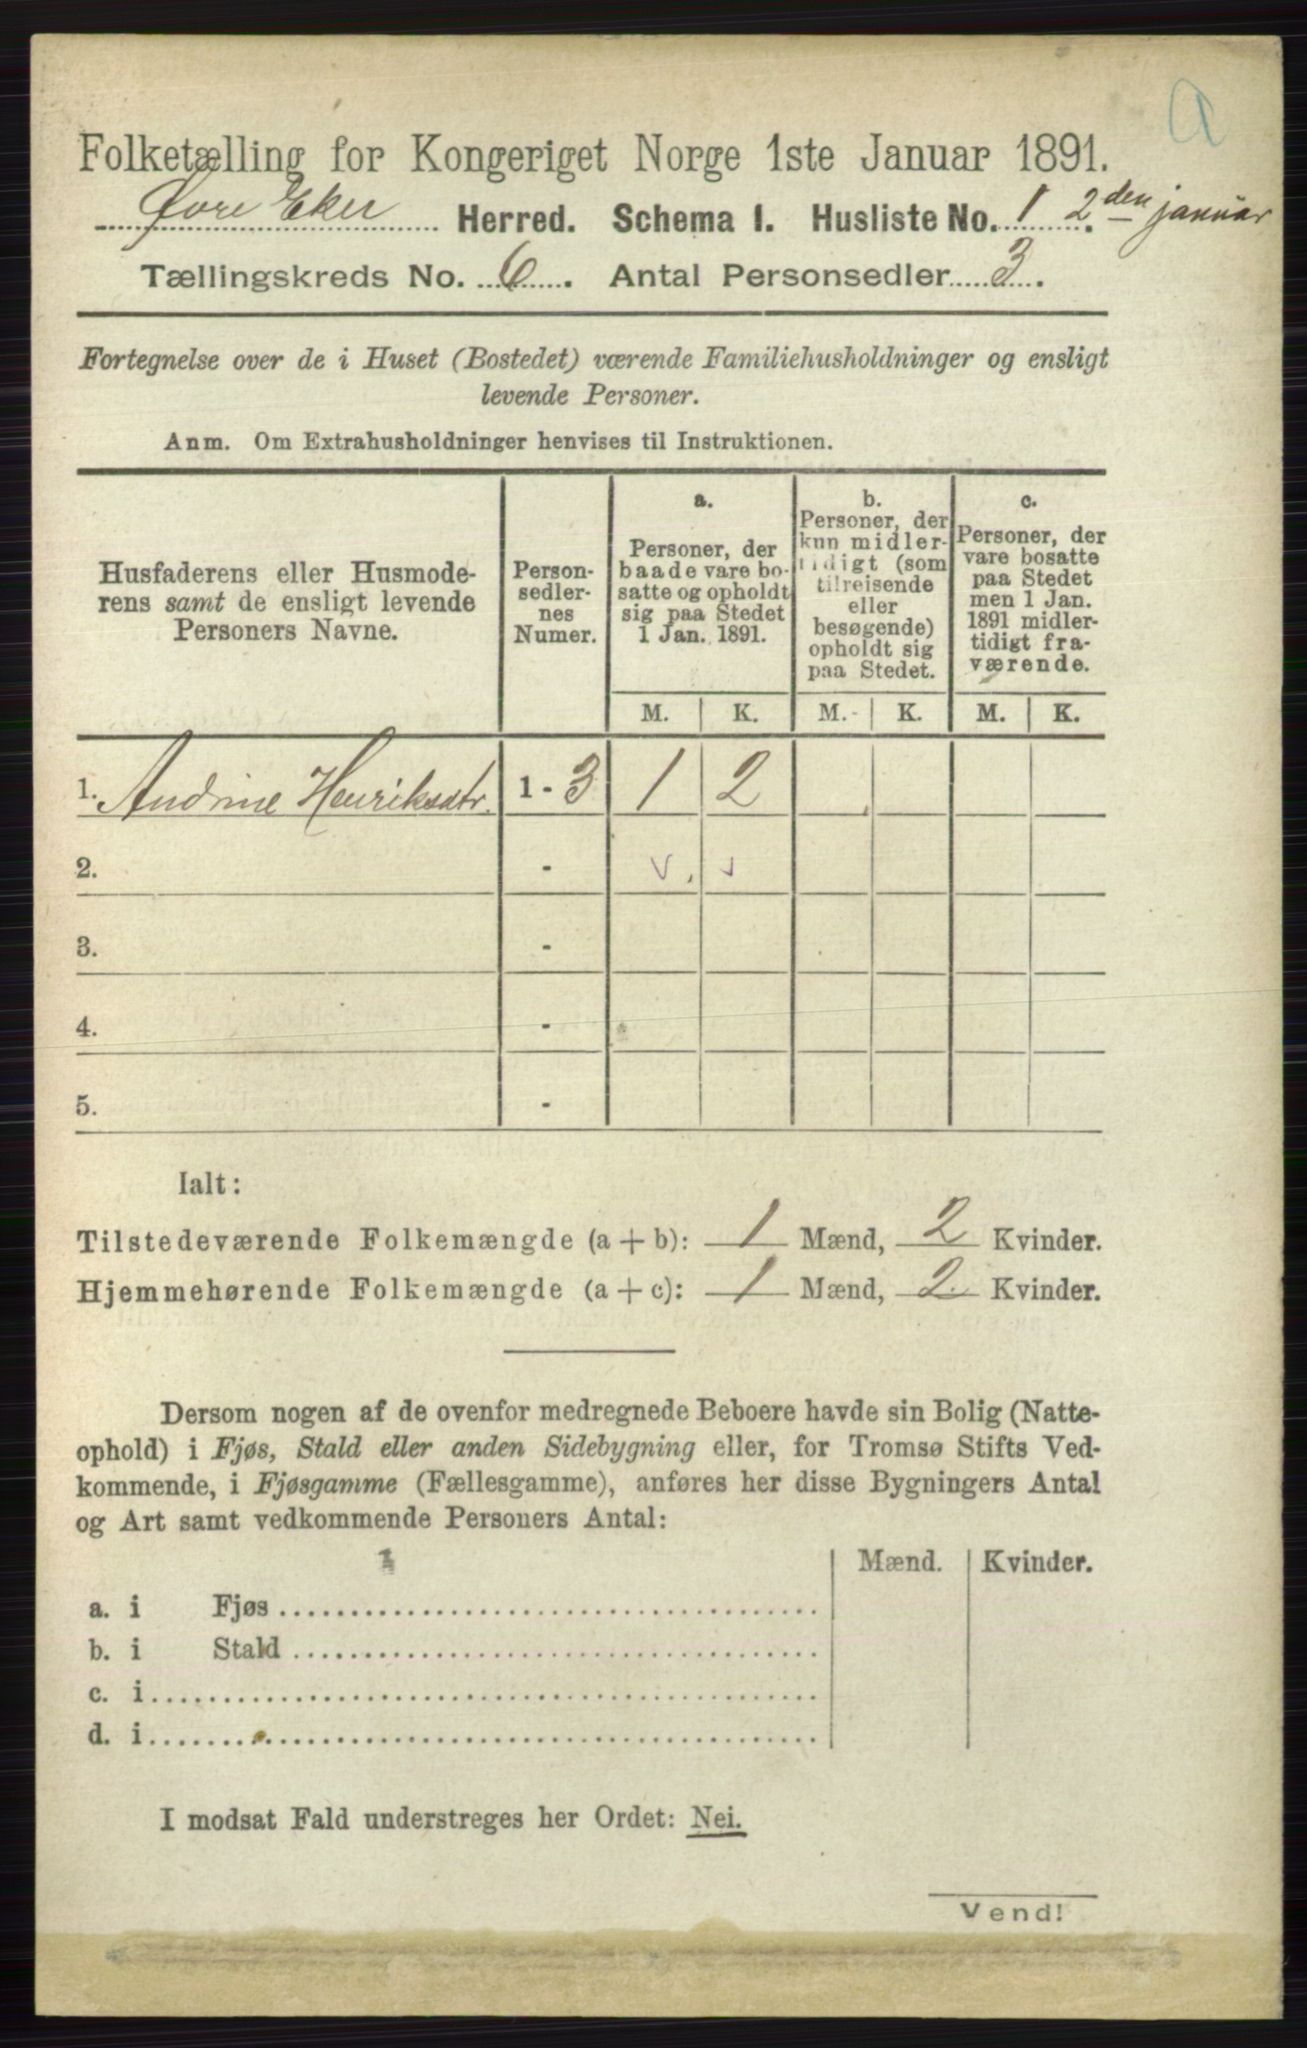 A
Folketælling for Kongeriget Norge 1ste Januar 1891.
Øvre Eker Herred. Schema 1. Husliste No. 1 2den januar
Tællingskreds No. 6. Antal Personsedler 3.
Fortegnelse over de i Huset (Bostedet) værende Familiehusholdninger og ensligt
levende Personer.
Anm. Om Extrahusholdninger henvises til Instruktionen.
Husfaderens eller Husmode-
rens samt de ensligt levende
Personers Navne.
Person-
sedler-
nes
Numer.
a.
Personer, der
baade vare bo-
satte og opholdt
sig paa Stedet
1 Jan. 1891.
b.
Personer, der
kun midler-
tidigt (som
tilreisende
eller
besøgende)
opholdt sig
paa Stedet.
c.
Personer, der
vare bosatte
paa Stedet
men 1 Jan.
1891 midler-
tidigt fra-
værende.
M. K. M. K. M. K.
1. Andrine Henriksdtr. 1 - 3 1 2
2. - v. v
3. -
4. -
5. -
Ialt:
Tilstedeværende Folkemængde (a + b): 1 Mænd, 2 Kvinder.
Hjemmehørende Folkemængde (a + c): 1 Mænd, 2 Kvinder.
Dersom nogen af de ovenfor medregnede Beboere havde sin Bolig (Natte-
ophold) i Fjøs, Stald eller anden Sidebygning eller, for Tromsø Stifts Ved-
kommende, i Fjøsgamme (Fællesgamme), anføres her disse Bygningers Antal
og Art samt vedkommende Personers Antal:
Mænd. Kvinder.
a. i Fjøs
b. i Stald
c. i
d. i
I modsat Fald understreges her Ordet: Nei.
Vend!